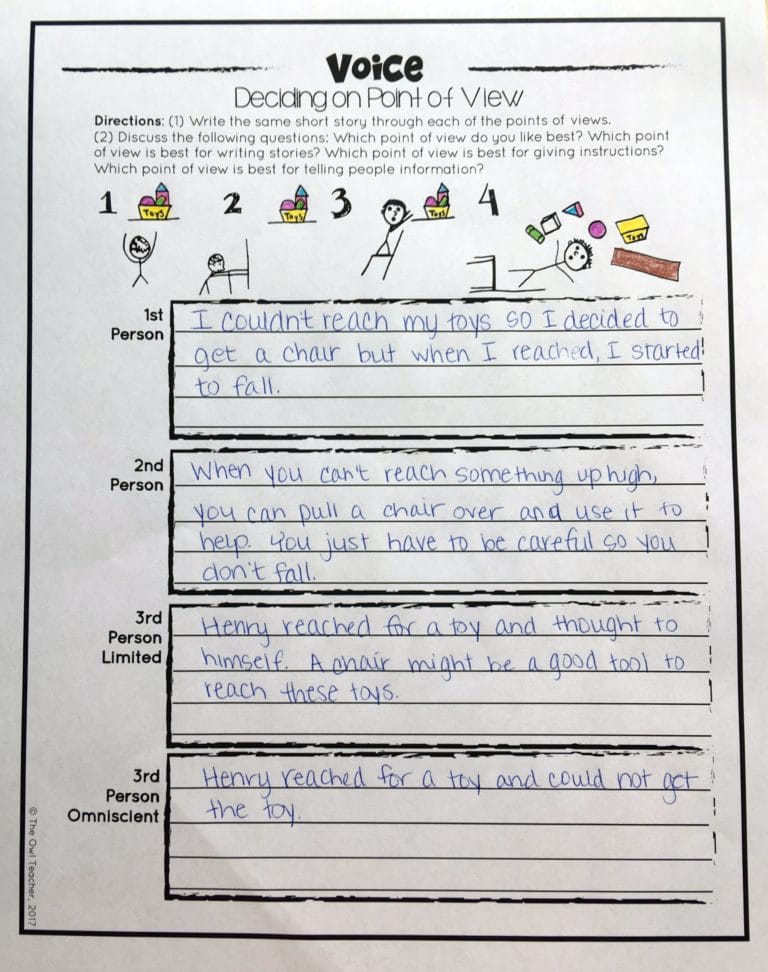 Voice
Deciding on Point of View
Directions: (1) Write the same short story through each of the points of views.
(2) Discuss the following questions: Which point of view do you like best? Which point
of view is best for writing stories? Which point of view is best for giving instructions?
Which point of view is best for telling people information?
1 Toys 2 Toys 3 Toys 4 Toys
1st
Person
I couldn't reach my toys so I decided to
get a chair but when I reached, I started
to fall.
2nd
Person
When you can't reach something up high,
you can pull a chair over and use it to
help. You just have to be careful so you
don't fall.
3rd
Person
Limited
Henry reached for a toy and thought to
himself. A chair might be a good tool to
reach these toys.
3rd
Person
Omniscient
Henry reached for a toy and could not get
the toy.
© The Owl Teacher, 2017